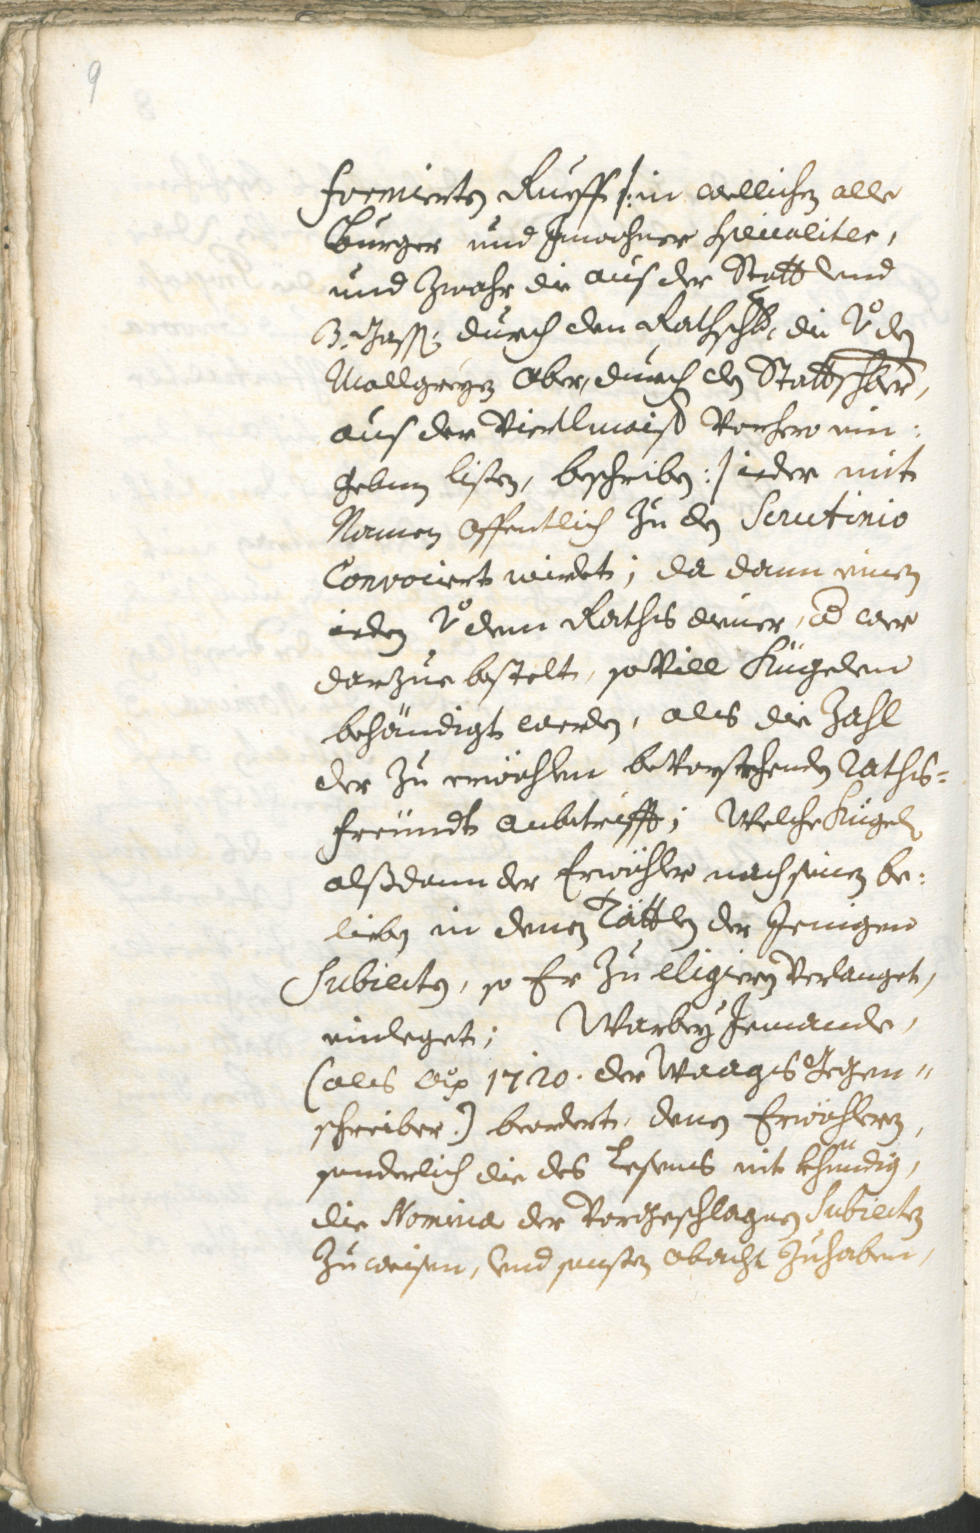 9
formierten Rueff /: in wellichen alle
Burger und Inwohner specialiter,
und zwahr die aus der Statt und
durch den Rathschb., die v. den
aber, durch den Stattschber,
aus der Viertlmaiß vorhero ein:
gebnen listen, beschriben :/ ieder mit
Namen offentlich zu den Scrutinio
Convociert wirdet; da dann einen
ieden v. dem Raths diener, od. wer
darzue bestelt, so vill Kügelen
behändigt werden, als die Zahl
der zu erwöhlen bevorstehenden Raths-
freündt anbetrifft; Welche Kügel
alßdann der Erwöhler nach seinen be:
lieben in denen Lättlen der Jenigen
Subiecten, so Er zu eligieren verlanget,
einleget; Warbey Jemandt,
(als 1720. der Waags Gegen=
schreiber.) beordert, denen Erwöhlern,
sonderlich die des Lesens nit khündig,
die Nomina der vorgeschlagnen Subiecten
zu weisen, und sonsten obacht zu haben,